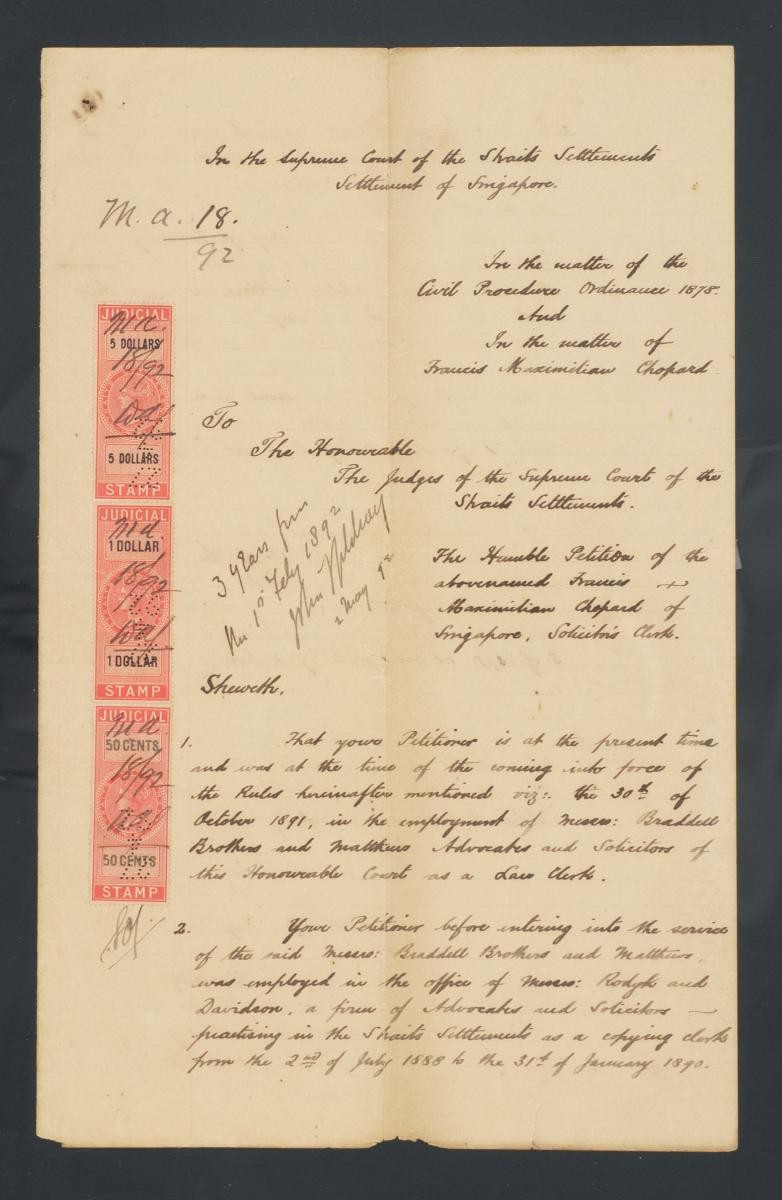 In the Supreme Court of the Straits Settlements
Settlement of Singapore.
M. a. 18.
92
In the matter of the
Civil Procedure Ordinance 1878.
And
In the matter of
Francis Maximilian Chopard
To
The Honourable
The Judges of the Supreme Court of the
Straits Settlements.
3 years from
1st Feby 1892
John
2 May
The Humble Petition of the
abovenamed Francis
Maximilian Chopard of
Singapore, Solicitor's Clerk.
Sheweth.
1. That your Petitioner is at the present time
and was at the time of the coming into force of
the Rules hereinafter mentioned viz:. the 30th of
October 1891, in the employment of Messrs: Braddell
Brothers and Matthews Advocates and Solicitors of
this Honourable Court as a Law Clerk.
2. Your Petitioner before entering into the service
of the said Messrs: Braddell Brothers and Matthews,
was employed in the office of Messrs: Rodyk and
Davidson, a firm of Advocates and Solicitors
practising in the Straits Settlements as a copying clerk
from the 2nd of July 1888 to the 31st of January 1890.
JUDICIAL
M a.
5 DOLLARS
18/92
5 DOLLARS
STAMP
JUDICIAL
M a
1 DOLLAR
18/92
1 DOLLAR
STAMP
JUDICIAL
M a
50 CENTS
18/92
50 CENTS
STAMP